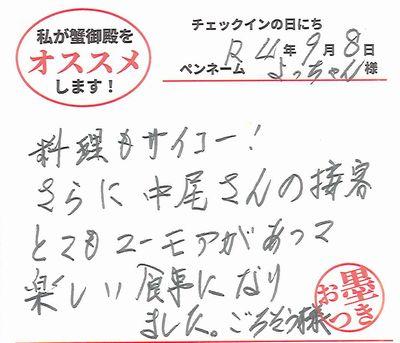 私が蟹御殿を
オススメ
します！
チェックインの日にち
R4年9月8日
ペンネーム よっちゃん様
料理もサイコー!
さらに中尾さんの接客
とてもユーモアがあって
楽しい食事になり
ました。ごちそう様
お墨つき